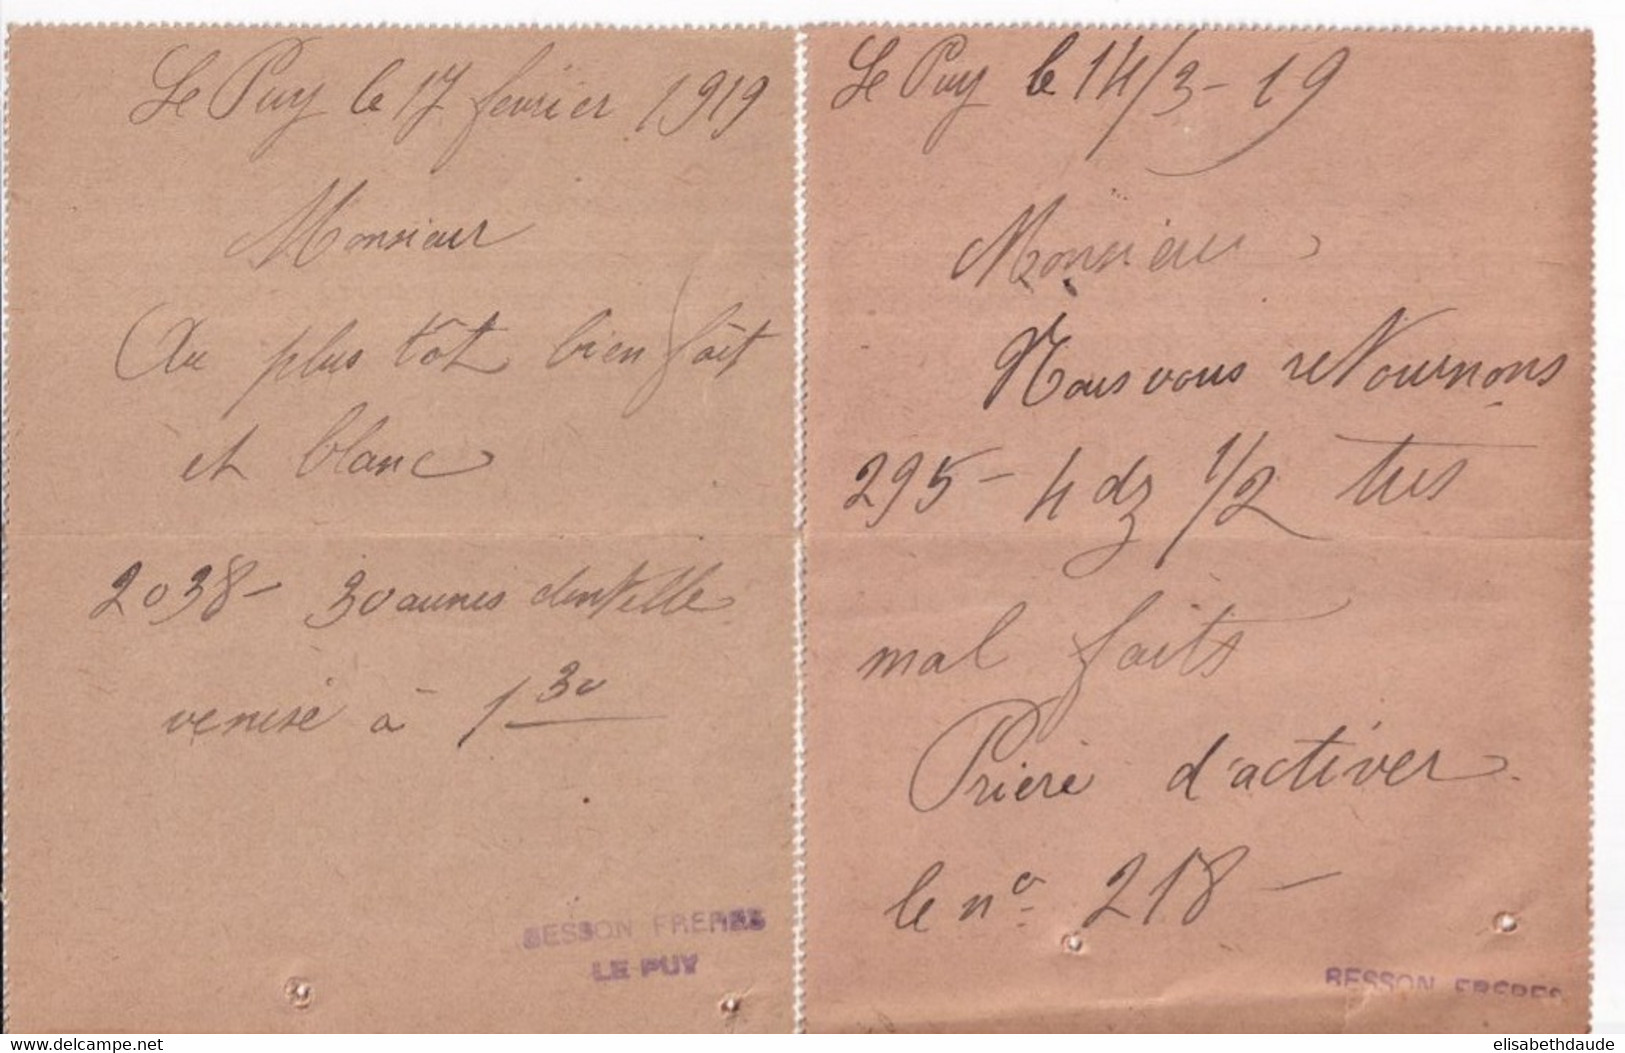 Le Puy le 17 février 1919
Monsieur
Au plus tôt bien fait
et blanc
2038 - 30 aunes dentelle
venise à 1 30
BESSON FRERES
LE PUY
Le Puy le 14/3 - 19
Monsieur
Nous vous retournons
295 - 4 dz 1/2 très
mal faits
Prière d'activer
le no 218 -
BESSON FRERES
delcampe.net
elisabethdaude